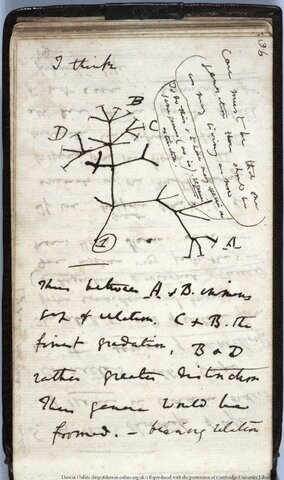 36
I think
case must be that one
generation then should be
as many living as now
To do this & to have many species in
same genus (as is). requires
extinction
B
C
D
A
1
Thus between A & B. immens
gap of relation. C & B. the
finest gradation, B & D
rather greater distinction
Thus genera would be
formed. — bearing relation
Darwin Online (http://darwin-online.org.uk/) Reproduced with the permission of Cambridge University Library